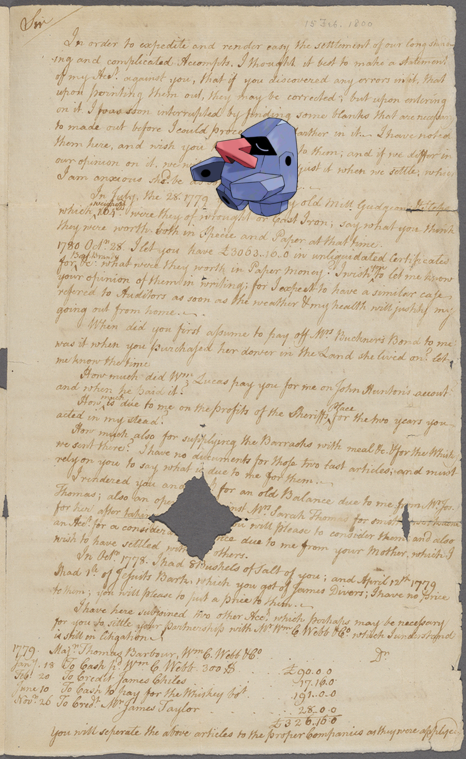 15 Feb. 1800
Sir
In order to expedite and render easy the settlement of our long stand-
ing and complicated Accompts, I thought it best to make a statement
of my Acct. against you, that if you discovered any errors in it, that
upon pointing them out, they may be corrected; but upon entering
on it I was soon interrupted by finding some blanks that are necessary
to made out before I could in it. I have noted
them here, and wish you to them; and if we differ in
our opinion on it, we just it when we settle; which
I am anxious shd. be
In July, the 28. 1779 old Mill Gudgeons
which, were they of wrought or Cast Iron; say what you think
they were worth both in Specie and Paper at that time.
1780 Octr. 28 I let you have £3003..10..0 in unliquidated Certificates
for what were they worth in Paper money? I wish to let me know
your opinion of them in writing; for I expect to have a similar case
referred to Auditors as soon as the weather & my health will justify my
going out from home.
When did you first assume to pay off Mrs. Buckner's Bond to me
was it when you purchased her dower in the Land she lived on? let
me know the time
How much did Wm. Lucas pay you for me on John Hunton's account
and when he paid it?
How is due to me on the profits of the Sheriffs Office for the two years you
acted in my stead.
How much also for supplying the Barracks with meal &c. for the Whisky
we sent there? I have no documents for those two last articles; and must
rely on you to say what is due to me for them.
I rendered you for an old Balance due to me from Mr. Jon.
Thomas; also an Mrs. Sarah Thomas for
for her after will please to consider them and also
an Acct. for a due to me from your Mother, which I
wish to have settled others.
In Octr. 1778. I had 8 Bushels of Salt of you; and April 12th. 1779
I had of Jesuits Bark, which you got of James Divers; I have no price
to them; you will please to put a price to them.
I have here subjoined two other Accts. which perhaps may be necessary
for you to settle your Partnership with Mr. Wm. C. Webb & Co. which I understand
is still in litigation.
1779. Majr. Thomas Barbour, Wm. C. Webb & Co. Dr.
Jany. 18 To Cash pr. Wm. C. Webb. 300 D £90..0..0
Feby. 20 To Credit James Chiles 17.16.0
June 10 To Cash to pay for the Whiskey 191..0..0
Novr. 26 To Credt. Mr. James Taylor 28..0..0
£326.16.0
You will seperate the above articles to the proper Companies as they were